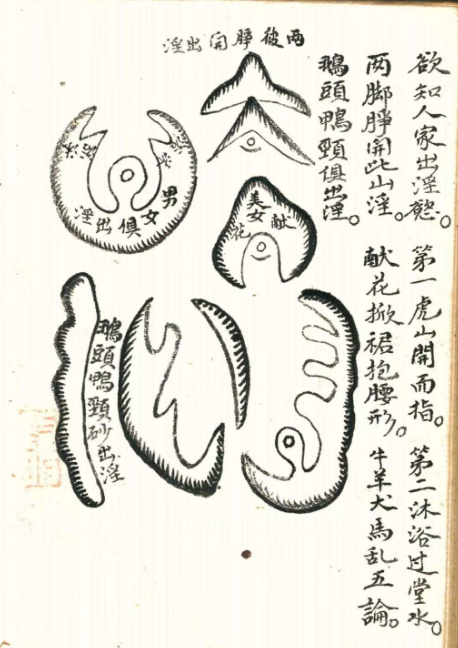 欲知人家出淫慾。第一虎山開而指。第二沐浴过堂水。
两脚睜開此山淫。献花掀裙抱腰形。牛羊犬馬乱五論。
鵝頭鴨頸俱出淫。
两彼睜開出淫
美女献花
男女俱出淫
鵝頭鴨頸砂出淫